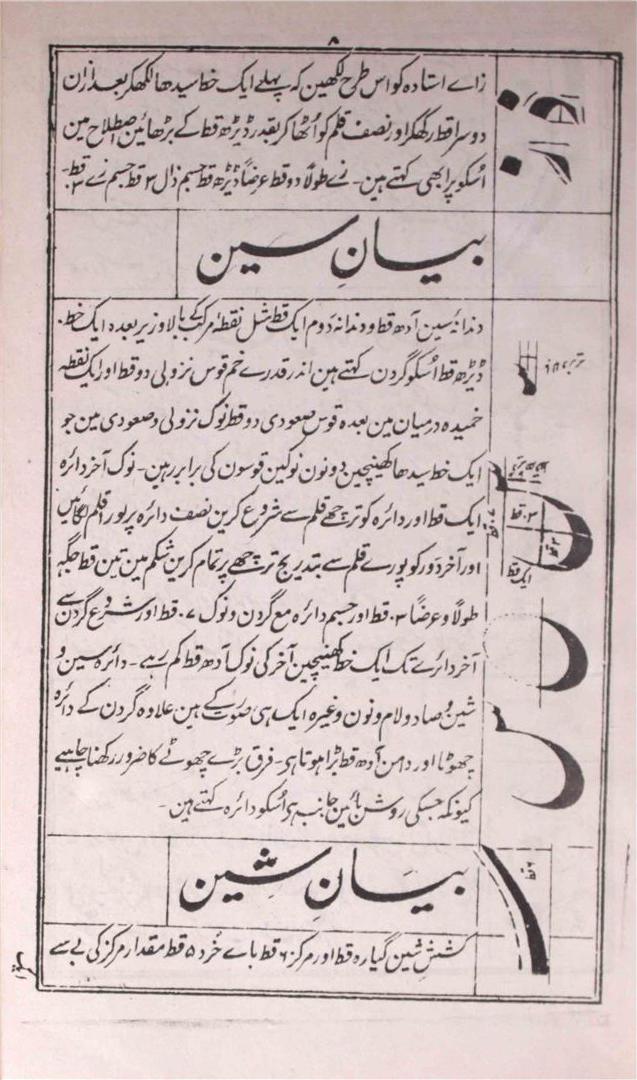 ۸
زاے استادہ کو اس طرح لکھین کہ پہلے ایک خط سیدھا لکھکر بعد ازان
دوسرا قط رکھکر اور نصف قلم کو اُٹھا کر بقدر ڈیڑھ قط کے بڑھائین اصطلاح مین
اُسکو پرا بھی کہتے ہین۔ زے طولاً دو قط عرضاً ڈیڑھ قط جسم ذال ۳ قط جسم زے ۳ قط۔
بیانِ سین
دندانۂ سین آدھ قط و دندانۂ دوم ایک قط مثل نقطہ مرکب کے بالا و زیر بعدہ ایک خط
ڈیڑھ قط اُسکو گردن کہتے ہین اندر قدرے خم قوس نزولی دو قط اور ایک نقطہ
خمیدہ درمیان مین بعدہ قوس صعودی دو قط نوک نزولی و صعودی مین جو
ایک خط سیدھا کھینچین دونون نوکین قوسون کی برابر رہین۔ نوک آخر دائرہ
ایک قط اور دائرہ کو ترچھے قلم سے شروع کرین نصف دائرہ پر پورا قلم لگائین
اور آخر دَور کو پورے قلم سے بتدریج ترچھے پر تمام کرین شکم مین تین قط جگہ
طولاً و عرضاً ۳ قط اور جسم دائرہ مع گردن و نوک ۷ قط اور شروع گردن سے
آخر دائرے تک ایک خط کھینچین آخر کی نوک آدھ قط کم رہے۔ دائرہ سین و
شین و صاد و لام و نون وغیرہ ایک ہی صورت کے ہین علاوہ گردن کے دائرہ
چھوٹا اور دامن آدھ قط بڑا ہوتا ہی۔ فرق بڑے چھوٹے کا ضرور رکھنا چاہیے
کیونکہ جسکی روش بائین جانب ہی اُسکو دائرہ کہتے ہین۔
۳ قط
۷ قط
ایک قط
بیانِ شین
۲ قط
کششِ شین گیارہ قط اور مرکز ۶ قط باے خُرد ۵ قط مقدار مرکز کی بے سے